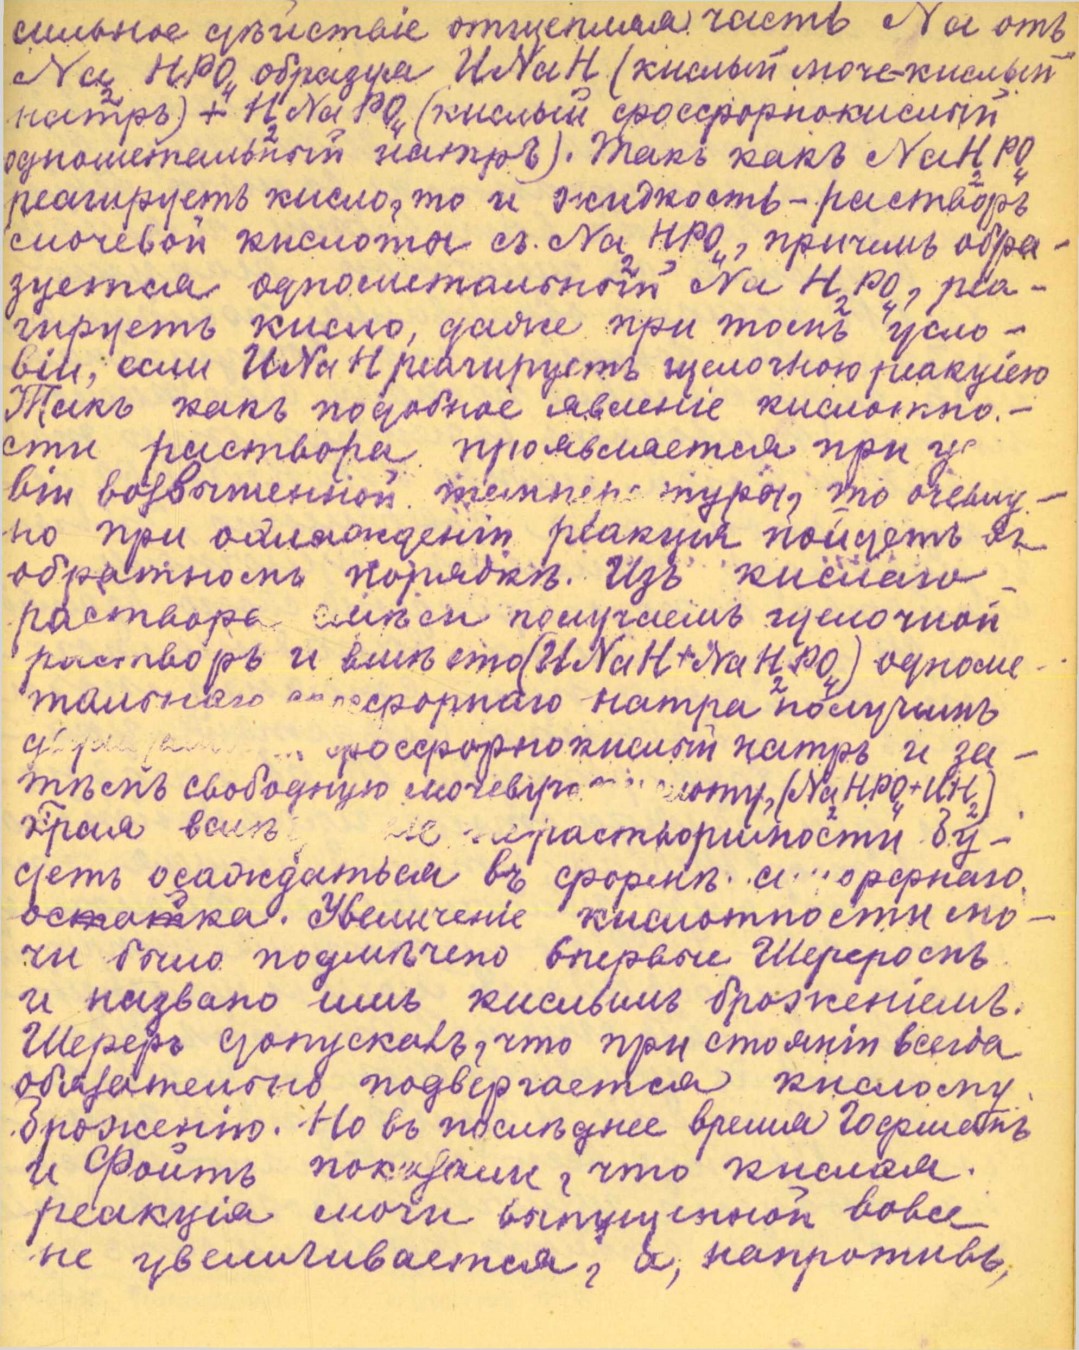 сильное дѣйствіе отщепляя часть Na отъ
Na₂HPO₄ образуя UNaH (кислый моче-кислый
натръ) + H₂NaPO₄ (кислый фосфорнокислый
однометальный натръ). Такъ какъ NaH₂PO₄
реагируетъ кисло, то и жидкость - растворъ
мочевой кислоты съ Na₂HPO₄, причемъ обра-
зуется однометальный NaH₂PO₄, реа-
гируетъ кисло, даже при томъ усло-
віи, если UNaH реагируетъ щелочною реакціею
Такъ какъ подобное явленіе кислотно-
сти раствора проявляется при ус
віи возвышенной температуры, то очевид-
но при охлажденіи реакція пойдетъ въ
обратномъ порядкѣ. Изъ кислаго
раствора смѣси получаемъ щелочной
растворъ и вмѣсто (UNaH+NaH₂PO₄) одноме-
тальнаго фосфорнаго натра получимъ
фосфорнокислый натръ и за-
тѣмъ свободную мочевую кислоту, (Na₂HPO₄+UH₂)
нерастворимости бу-
детъ осаждаться въ формѣ аморфнаго
остатка. Увеличеніе кислотности мо-
чи было подмѣчено впервые Шереромъ
и названо имъ кислымъ броженіемъ.
Шереръ допускалъ, что при стояніи всегда
обязательно подвергается кислому
броженію. Но въ послѣднее время Гофманъ
и Фойтъ показали, что кислая
реакція мочи выпущенной вовсе
не увеличивается, а, напротивъ,